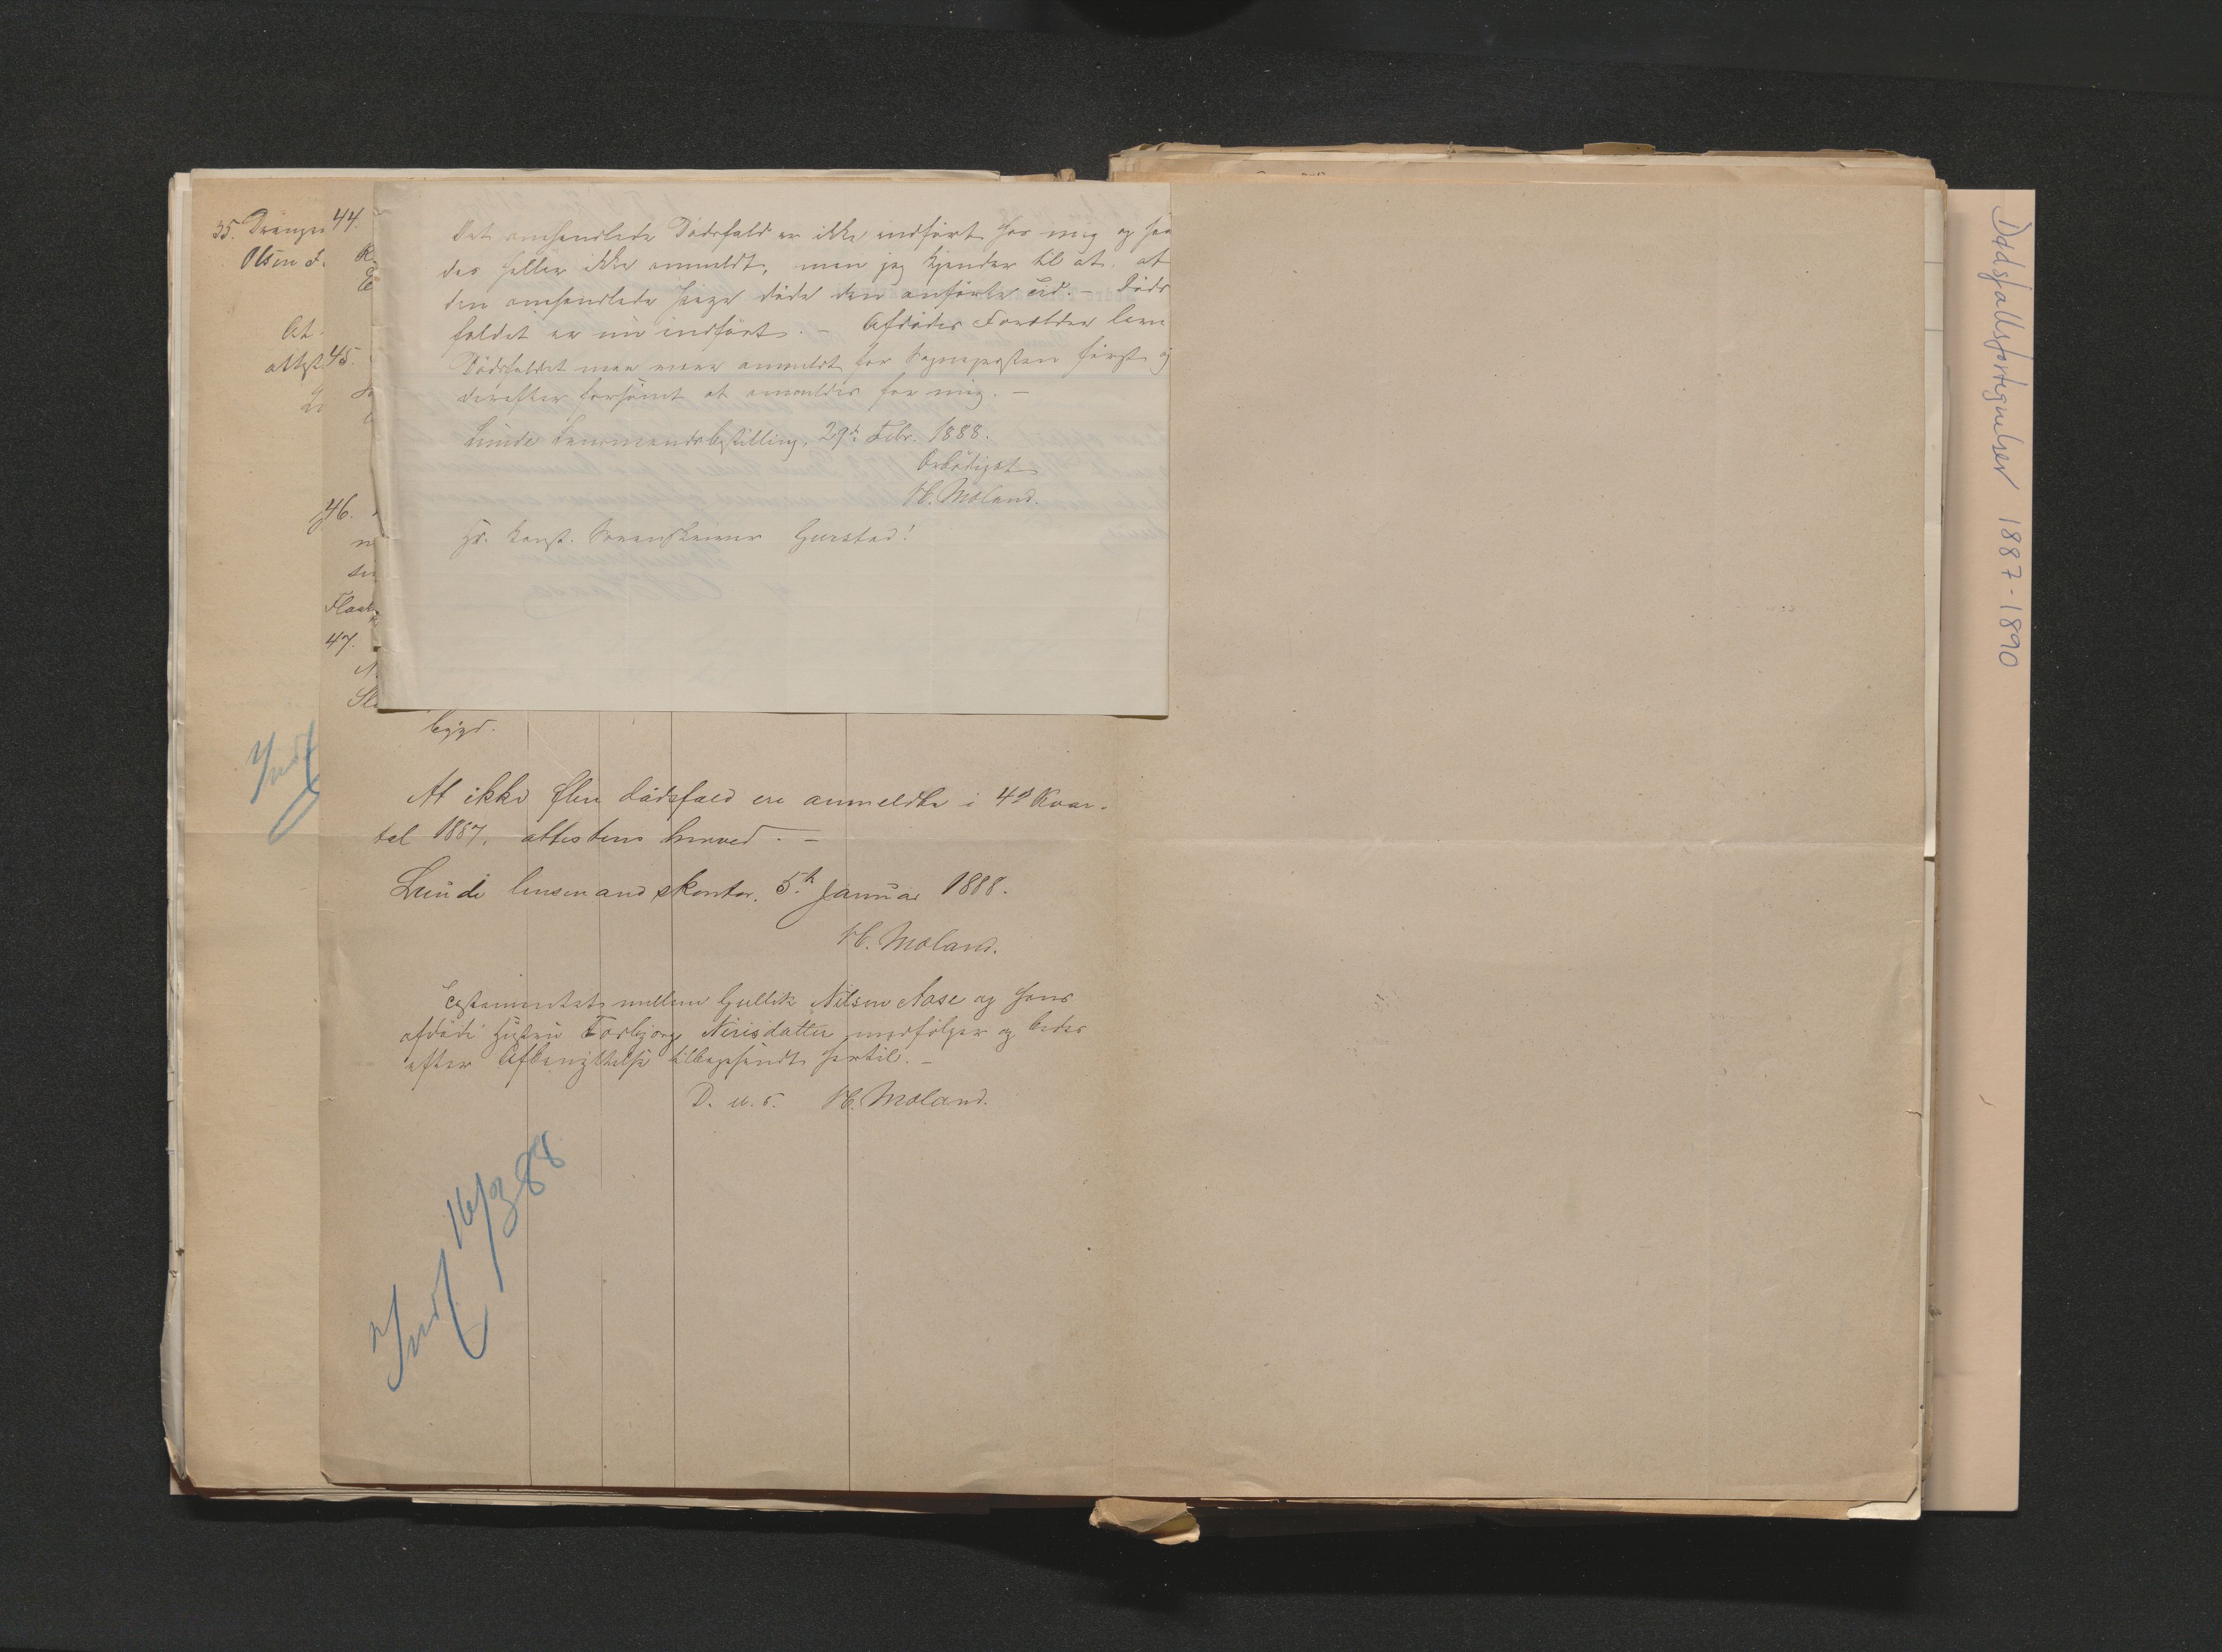 35. Drengen
Olsen F.
At
attest
44.
45.
46.
Flaat
47.
Indf
Det omhandlede Dødsfald er ikke indført hos mig og saa
des heller ikke anmeldt, men jeg kjender til at, at
den omhandlede Pige døde den anførte Tid. – Døds
faldet er nu indført. – Afdødes Forældre leve
Dødsfaldet maa være anmeldt for Sognepresten først og
derefter forsømt at anmeldes for mig. –
Lunde Lensmandsbestilling, 29de Febr. 1888.
Ærbødigst
H. Moland.
Hr. konst. Sorenskriver Gurstad!
bygd.
At ikke flere dødsfald ere anmeldte i 4de Kvar-
tal 1887, attesteres herved. –
Lunde lensmandskontor, 5te Januar 1888.
H. Moland.
Testamentet mellem Gullik Nilsen Aase og hans
afdøde Hustru Torbjørg Nirisdatter medfølger og bedes
efter Afbenyttelse tilbagesendt hertil. –
D. u. s. H. Moland.
Indf 16/3 88
Dødsfallsfortegnelser 1887-1890